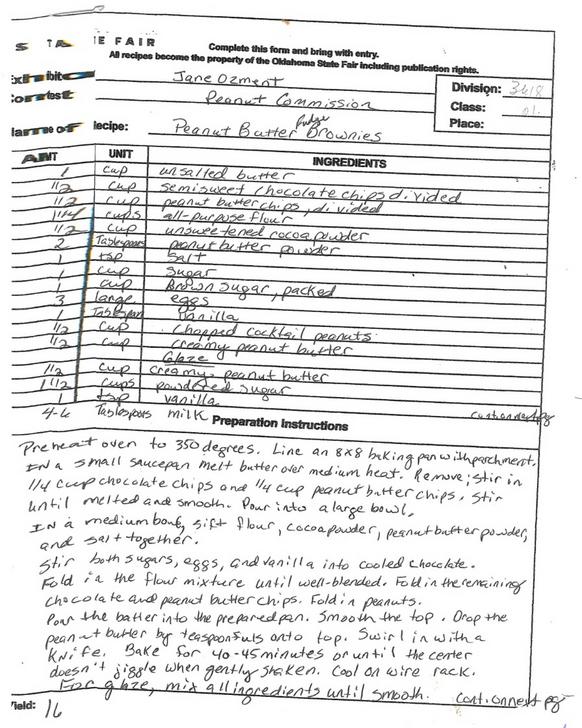 STATE FAIR
Complete this form and bring with entry.
All recipes become the property of the Oklahoma State Fair including publication rights.
Exhibitor Jane Ozment
Contest Peanut Commission
Division: 3418
Class: 01
Place:
Name of Recipe: Peanut Butter Fudge Brownies
AMT UNIT INGREDIENTS
1 cup unsalted butter
1/2 cup semisweet chocolate chips divided
1/2 cup peanut butter chips, divided
1 1/4 cups all-purpose flour
1/2 cup unsweetened cocoa powder
2 Tablespoons peanut butter powder
1 tsp salt
1 cup sugar
1 cup Brown sugar, packed
3 large eggs
1 Tablespoon Vanilla
1/2 cup chopped cocktail peanuts
1/2 cup creamy peanut butter
Glaze
1/2 cup creamy peanut butter
1 1/2 cups powdered sugar
1 tsp vanilla
4-6 Tablespoons milk cont. on next pg
Preparation Instructions
Preheat oven to 350 degrees. Line an 8x8 baking pan with parchment.
In a small saucepan melt butter over medium heat. Remove; stir in
1/4 cup chocolate chips and 1/4 cup peanut butter chips. Stir
until melted and smooth. Pour into a large bowl.
In a medium bowl, sift flour, cocoa powder, peanut butter powder,
and salt together.
Stir both sugars, eggs, and vanilla into cooled chocolate.
Fold in the flour mixture until well-blended. Fold in the remaining
chocolate and peanut butter chips. Fold in peanuts.
Pour the batter into the prepared pan. Smooth the top. Drop the
peanut butter by teaspoonfuls onto top. Swirl in with a
Knife. Bake for 40-45 minutes or until the center
doesn't jiggle when gently shaken. Cool on wire rack.
For glaze, mix all ingredients until smooth. cont. on next pg
Yield: 16